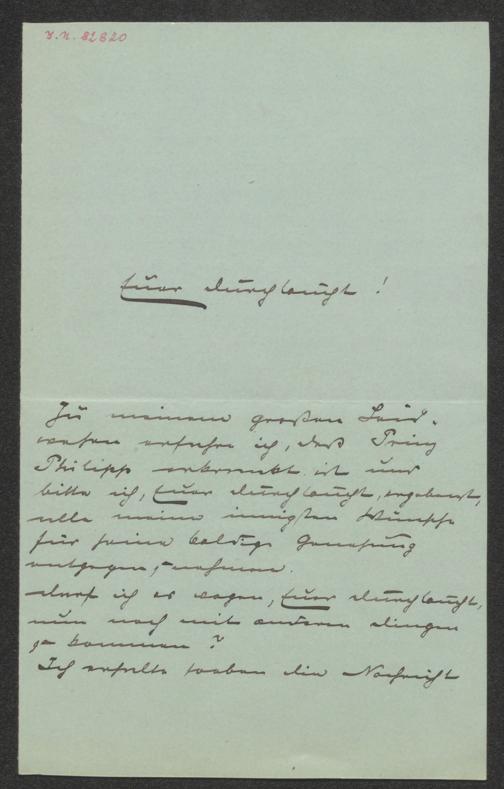 I.N. 82820
Euer Durchlaucht!
Zu meinem großen Leid-
wesen erfahre ich, daß Prinz
Philipp erkrankt ist und
bitte ich, Euer Durchlaucht, ergebenst,
alle meine innigsten Wünsche
für seine baldige Genesung
entgegen zu nehmen.
Darf ich es wagen, Euer Durchlaucht,
nun noch mit anderen Dingen
zu kommen?
Ich erhalte soeben die Nachricht